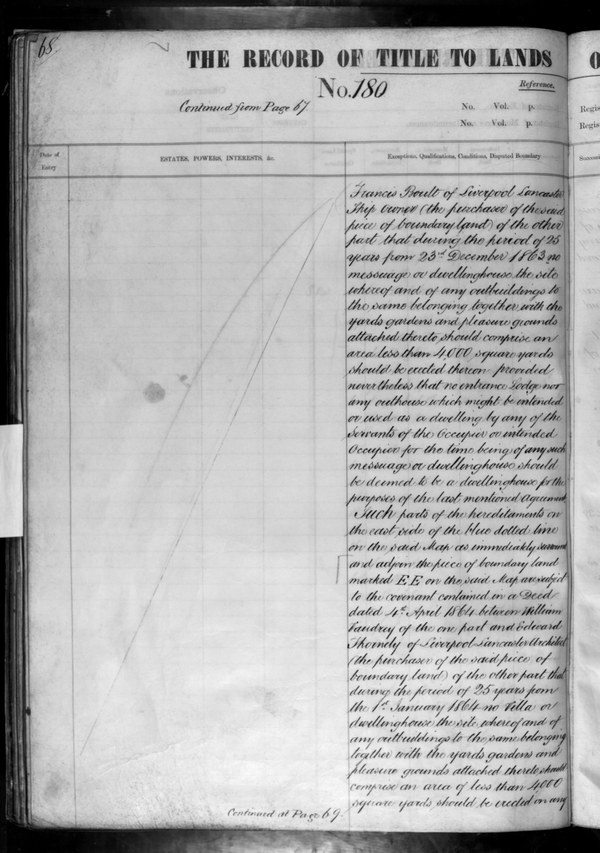 68
THE RECORD OF TITLE TO LANDS
No. 180
Reference.
Continued from Page 67
No. Vol. p.
No. Vol. p.
Regis
Regis
Date of
Entry
ESTATES, POWERS, INTERESTS, &c.
Exceptions, Qualifications, Conditions, Disputed Boundary
Francis Boult of Liverpool Lancaster
Ship Owner (the purchaser of the said
piece of boundary land) of the other
part, that during the period of 25
years from 23rd December 1863 no
messuage or dwellinghouse the site
whereof and of any outbuildings to
the same belonging together with the
yards gardens and pleasure grounds
attached thereto should comprise an
area less than 4,000 square yards
should be erected thereon provided
nevertheless that no entrance Lodge nor
any outhouse which might be intended
or used as a dwelling by any of the
Servants of the Occupier or intended
Occupier for the time being of any such
messuage or dwellinghouse should
be deemed to be a dwellinghouse for the
purposes of the last mentioned agreement
Such parts of the hereditaments on
the east side of the blue dotted line
on the said Map as immediately surround
and adjoin the piece of boundary land
marked E.E on the said Map are subject
to the covenant contained in a Deed
dated 4th April 1864 between William
Vaudrey of the one part and Edward
Thornely of Liverpool Lancaster Architect
(the purchaser of the said piece of
boundary land) of the other part that
during the period of 25 years from
the 1st January 1864 no Villa or
dwellinghouse the site whereof and of
any outbuildings to the same belonging
together with the yards gardens and
pleasure grounds attached thereto should
comprise an area of less than 4000
square yards should be erected on any
Continued at Page 69.